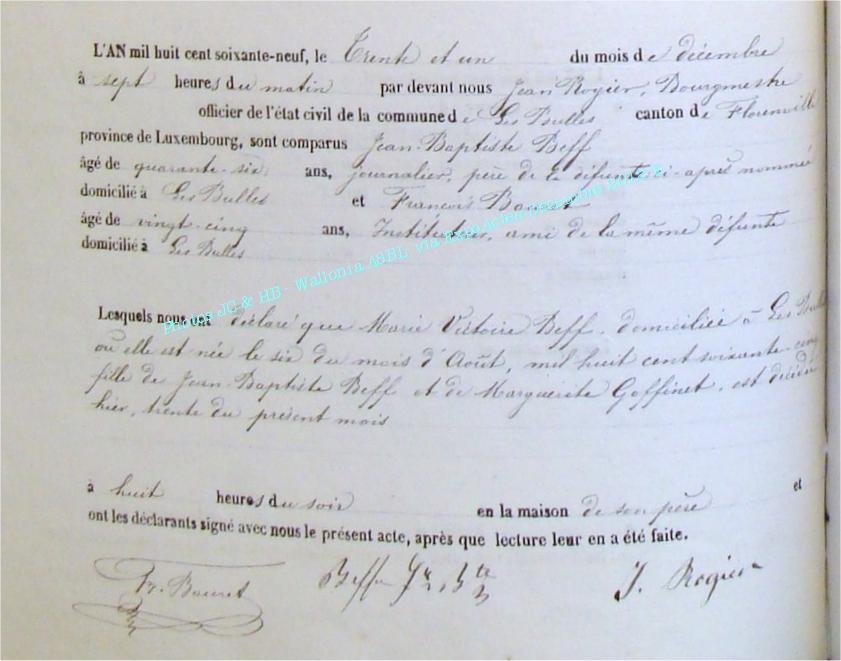 L'AN mil huit cent soixante-neuf, le Trente et un du mois de décembre
à sept heures du matin par devant nous Jean Rogier, Bourgmestre
officier de l'état civil de la commune de Les Bulles canton de Florenville
province de Luxembourg, sont comparus Jean-Baptiste Beff
âgé de quarante-six ans, journalier, père de la défunte ci-après nommée
domicilié à Les Bulles et François Bauret
âgé de vingt-cinq ans, Instituteur, ami de la même défunte
domicilié à Les Bulles
Photos JC & HB - Wallonia ASBL, via
Lesquels nous ont déclaré que Marie Victoire Beff, domiciliée à Les Bulles
où elle est née le six du mois d'Août, mil huit cent soixante-cinq
fille de Jean-Baptiste Beff et de Marguerite Goffinet, est décédée
hier, trente du présent mois
à huit heures du soir en la maison de son père et
ont les déclarants signé avec nous le présent acte, après que lecture leur en a été faite.
Fr. Bauret Beffe J. Rogier